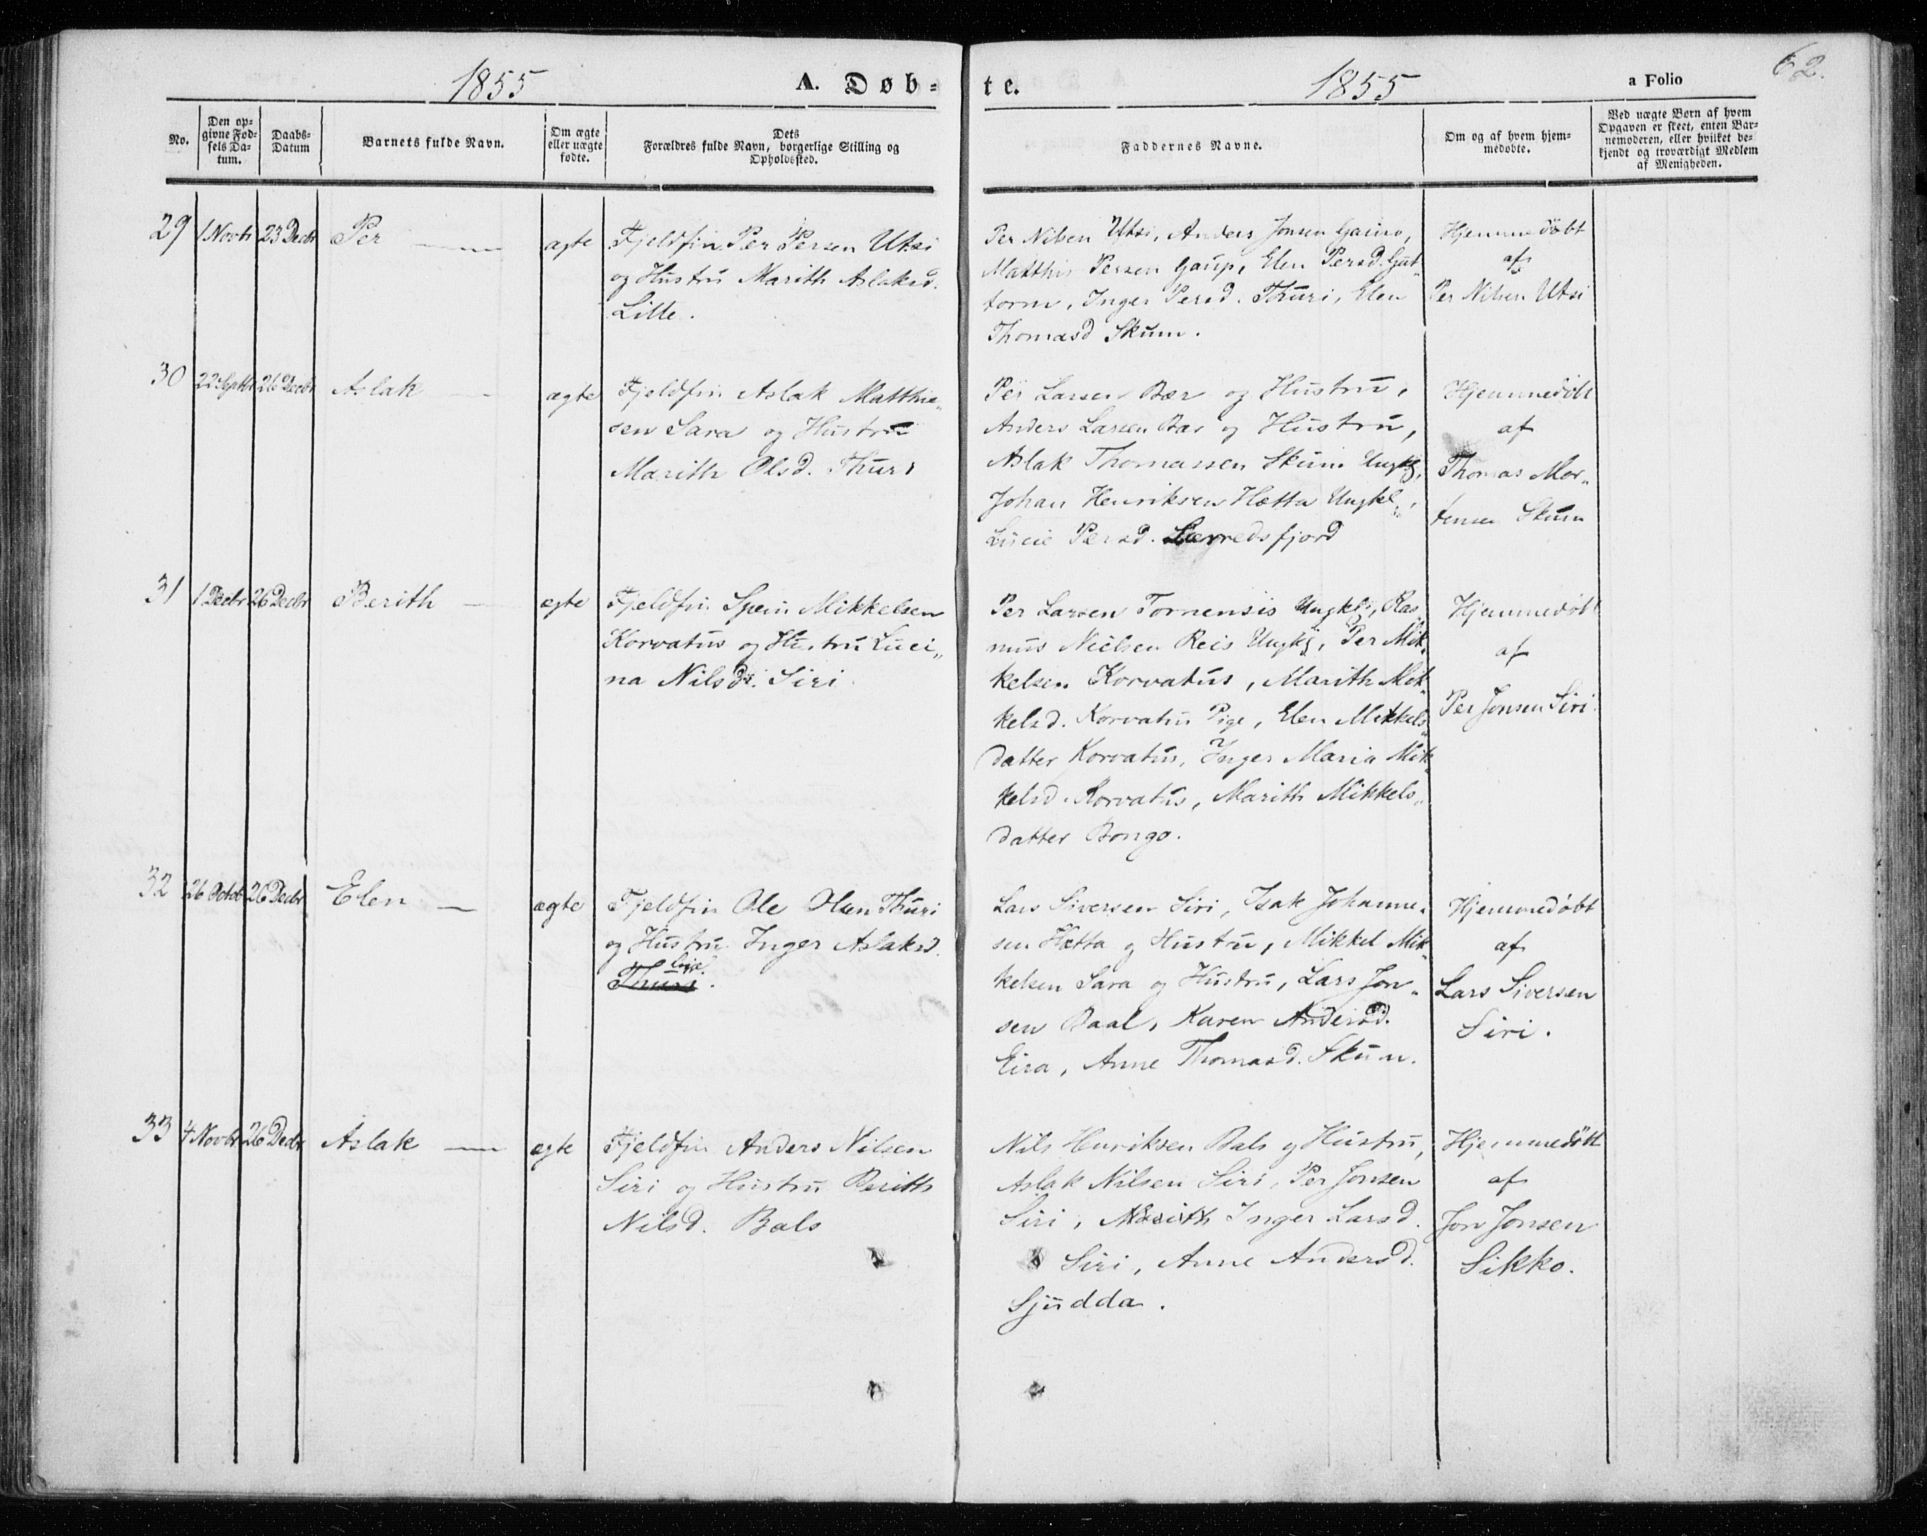 1855 A. Døb-
te. 1855 a Folio 62.
No.
Den op-
givne Fød-
sels Da-
tum.
Daabs-
Datum
Barnets fulde Navn.
Om ægte
eller uægte
fødte.
Dets
Forældres fulde Navn, borgerlige Stilling og
Opholdssted.
Faddernes Navne.
Om og af hvem hjem-
medøbte.
Ved uægte Børn af hvem
Opgaven er skeet, enten Bar-
nemoderen, eller hvilket be-
kjendt og troværdigt Medlem
af Menigheden.
29 1 Novbr 23 Decbr Per ægte
Fjeldfin Per Persen Utsi
og Hustru Marith Aslaksd.
Lille.
Per Nilsen Utsi, Anders Jonsen Gaino,
Matthis Persen Gaup, Elen Persd. Gut-
torm, Inger Persd. Thuri, Elen
Thomasd Skum.
Hjemmedøbt
af
Per Nilsen Utsi
30 22 Septbr 26 Decbr Aslak ægte
Fjeldfin Aslak Matthie-
sen Sara og Hustru
Marith Olsd. Thuri
Per Larsen Bær og Hustru,
Anders Larsen Bær og Hustru,
Aslak Thomassen Skum Ungk,
Johan Henriksen Hætta Ungkl.,
Lucie Persd. Laxredsfjord
Hjemmedøbt
af
Thomas Mor-
tensen Skum
31 1 Decbr 26 Decbr Berith ægte
Fjeldfin Spein Mikkelsen
Korvatus og Hustru Luci-
na Nilsdr. Siri
Per Larsen Tornensis Ungk, Ras
mus Nielsen Reis Ungk, Per Mik-
kelsen Korvatus, Marith Mik-
kelsd. Korvatus Pige, Elen Mikkels-
datter Korvatus, Inger Maria Mik-
kelsd. Korvatus, Marith Mikkels-
datter Bongo.
Hjemmedøbt
af
Per Jonsen Siri
32 26 Octob 26 Decbr Elen ægte
Fjeldfin Ole Olsen Thuri
og Hustru Inger Aslaksd.
Thuri.
Lars Siversen Siri, Isak Johanne-
sen Hætta og Hustru, Mikkel Mik-
kelsen Sara og Hustru, Lars Jon-
sen Baal, Karen Andersd.
Eira, Anne Thomasd. Skum.
Hjemmedøbt
af
Lars Siversen
Siri.
33 4 Novbr 26 Decbr Aslak ægte
Fjeldfin Anders Nilsen
Siri og Hustru Berith
Nilsd. Bals
Nils Henriksen Bals og Hustru,
Aslak Nilsen Siri, Per Jonsen
Siri, Marith Inger Larsd.
Siri, Anne Andersd.
Sjudda.
Hjemmedøbt
af
Jon Jonsen
Sikko.